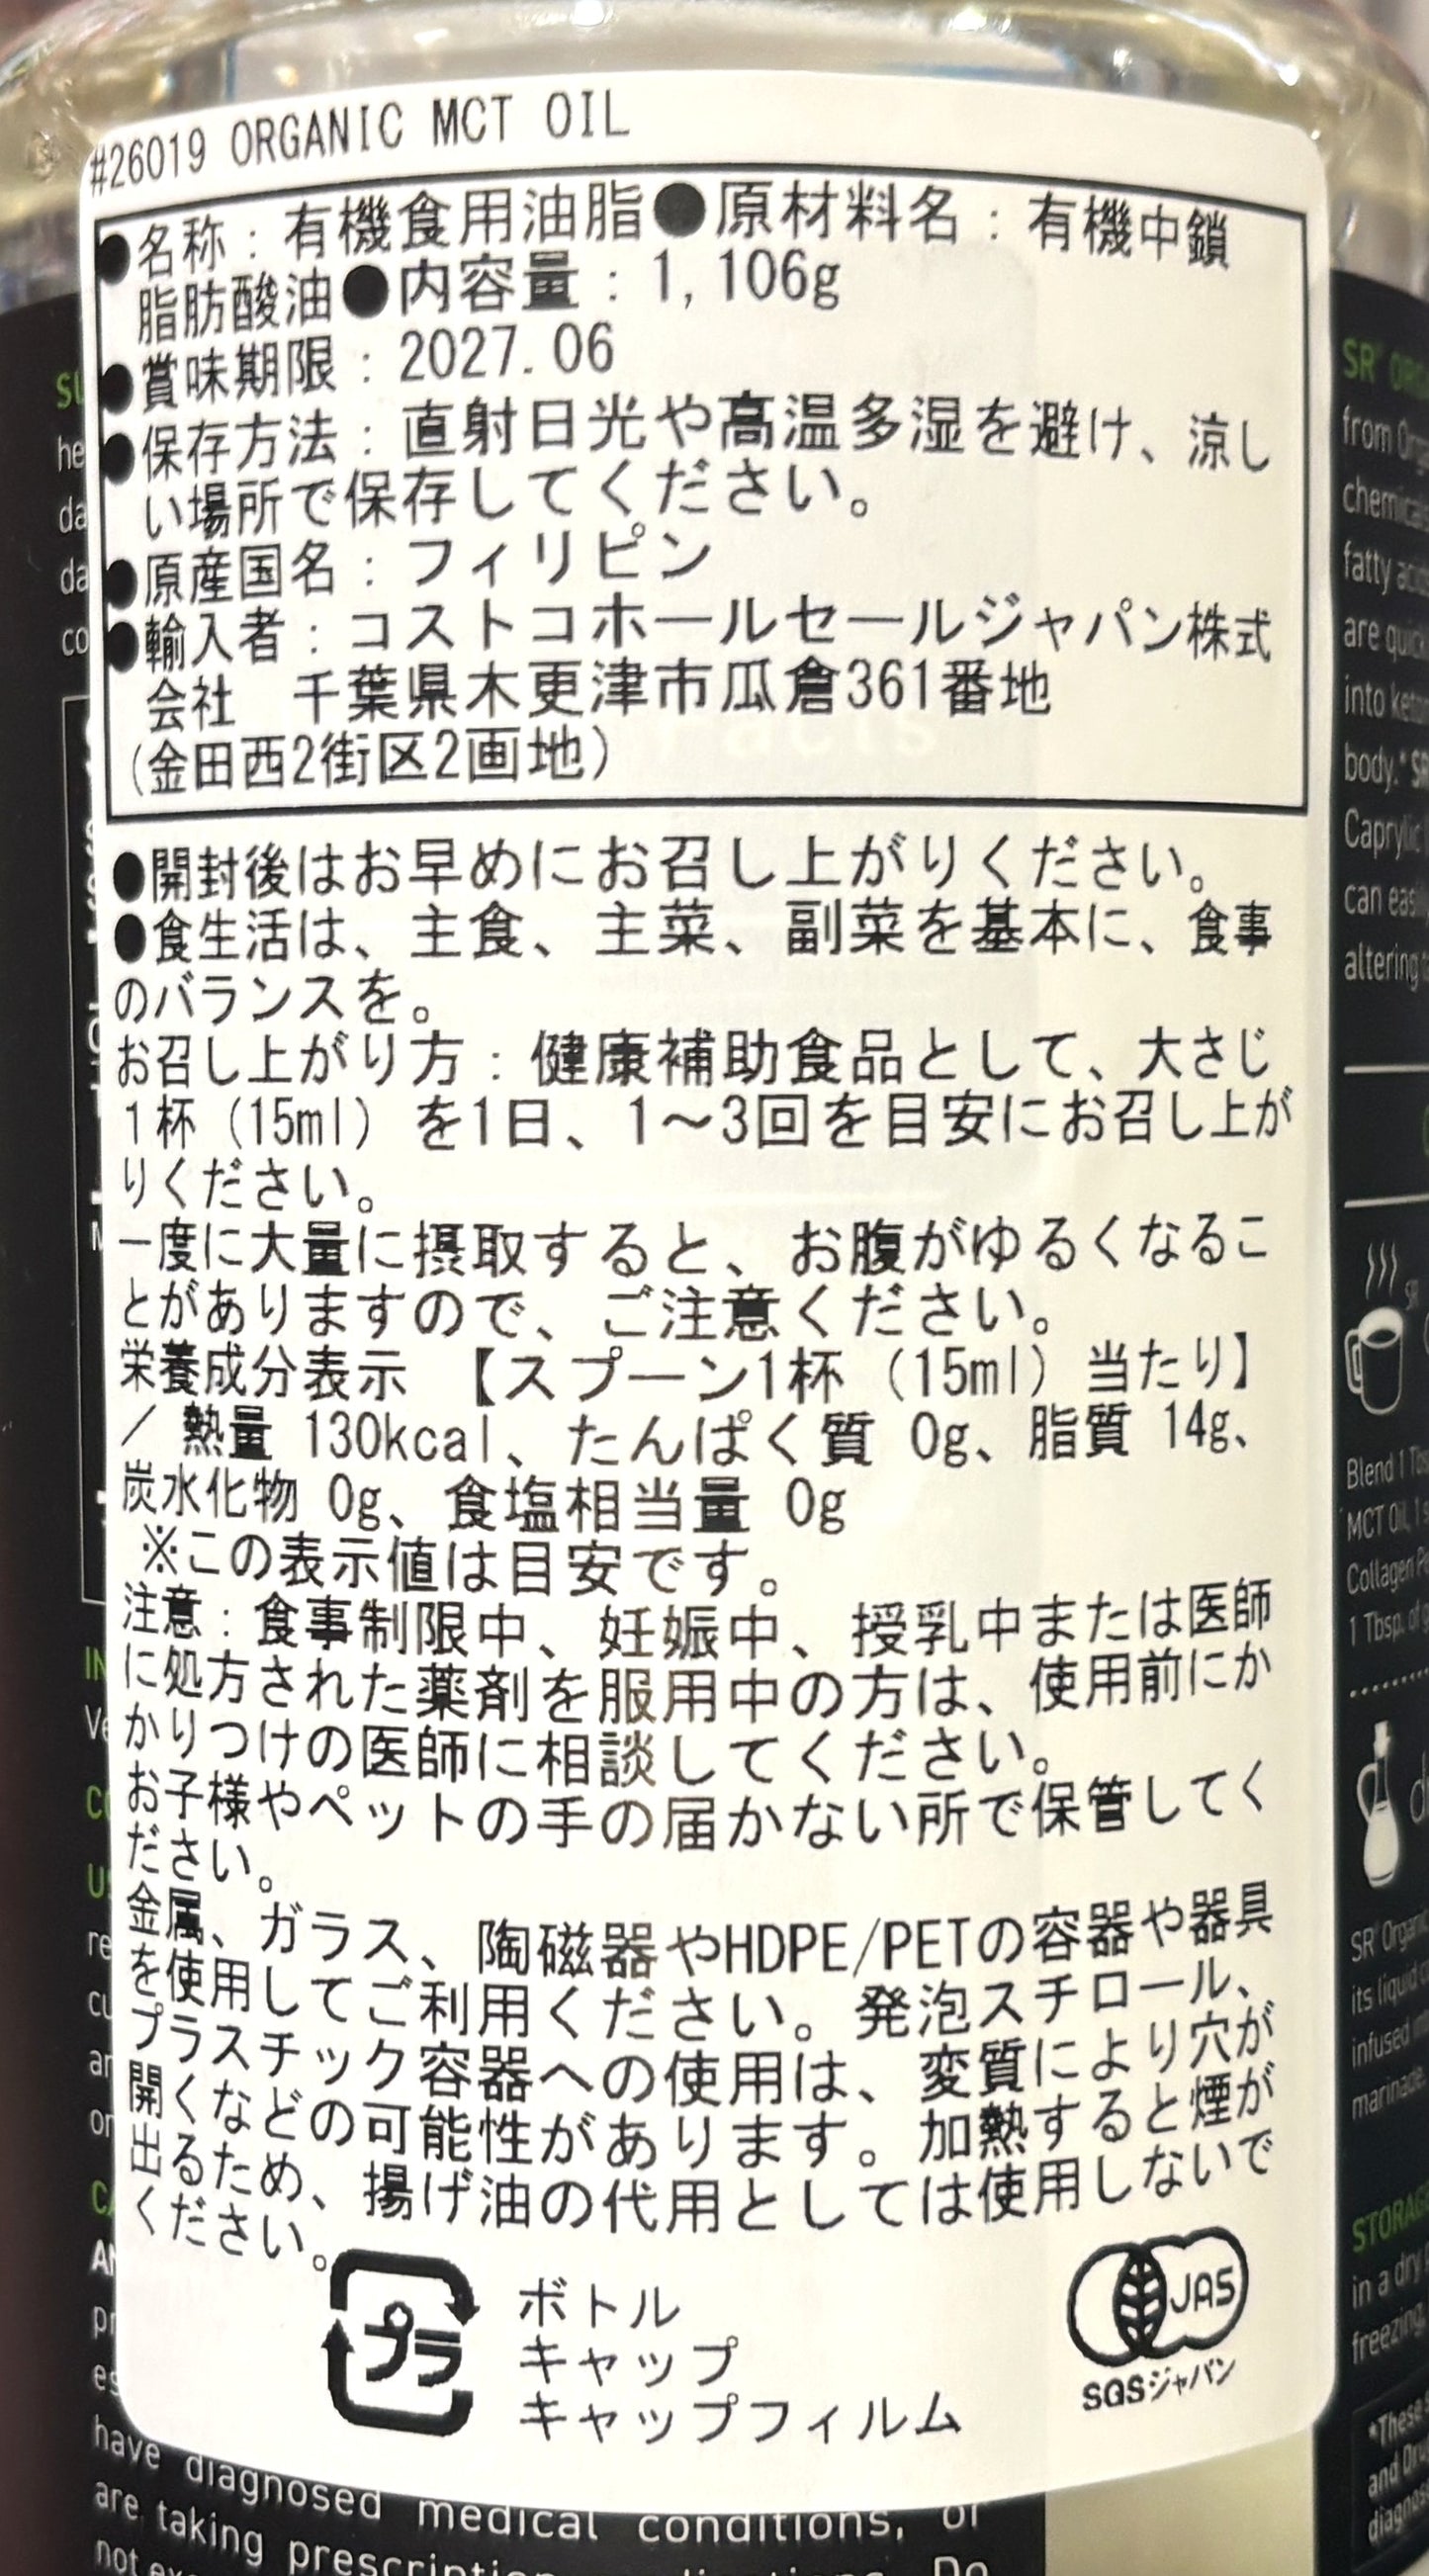 #26019 ORGANIC MCT OIL
●名称：有機食用油脂●原材料名：有機中鎖
脂肪酸油●内容量：1,106g
●賞味期限：2027.06
●保存方法：直射日光や高温多湿を避け、涼し
い場所で保存してください。
●原産国名：フィリピン
●輸入者：コストコホールセールジャパン株式
会社　千葉県木更津市瓜倉361番地
(金田西2街区2画地)
●開封後はお早めにお召し上がりください。
●食生活は、主食、主菜、副菜を基本に、食事
のバランスを。
お召し上がり方：健康補助食品として、大さじ
1杯（15ml）を1日、1～3回を目安にお召し上が
りください。
一度に大量に摂取すると、お腹がゆるくなるこ
とがありますので、ご注意ください。
栄養成分表示 【スプーン1杯（15ml）当たり】
／ 熱量 130kcal、たんぱく質 0g、脂質 14g、
炭水化物 0g、食塩相当量 0g
※この表示値は目安です。
注意：食事制限中、妊娠中、授乳中または医師
に処方された薬剤を服用中の方は、使用前にか
かりつけの医師に相談してください。
お子様やペットの手の届かない所で保管してく
ださい。
金属、ガラス、陶磁器やHDPE/PETの容器や器具
を使用してご利用ください。発泡スチロール、
プラスチック容器への使用は、変質により穴が
開くなどの可能性があります。加熱すると煙が
出るため、揚げ油の代用としては使用しないで
ください。
プラ
ボトル
キャップ
キャップフィルム
JAS
SGSジャパン
have diagnosed medical conditions, or
are taking prescription
not
Do
SR
from
chemicals
fatty
are
into
body.*
Caprylic
can
altering
Blend 1
MCT Oil, 1
Collagen
1 Tbsp. of
SR
its liquid
infused
marinade
STORAGE
in a dry
freezing,
*These
and